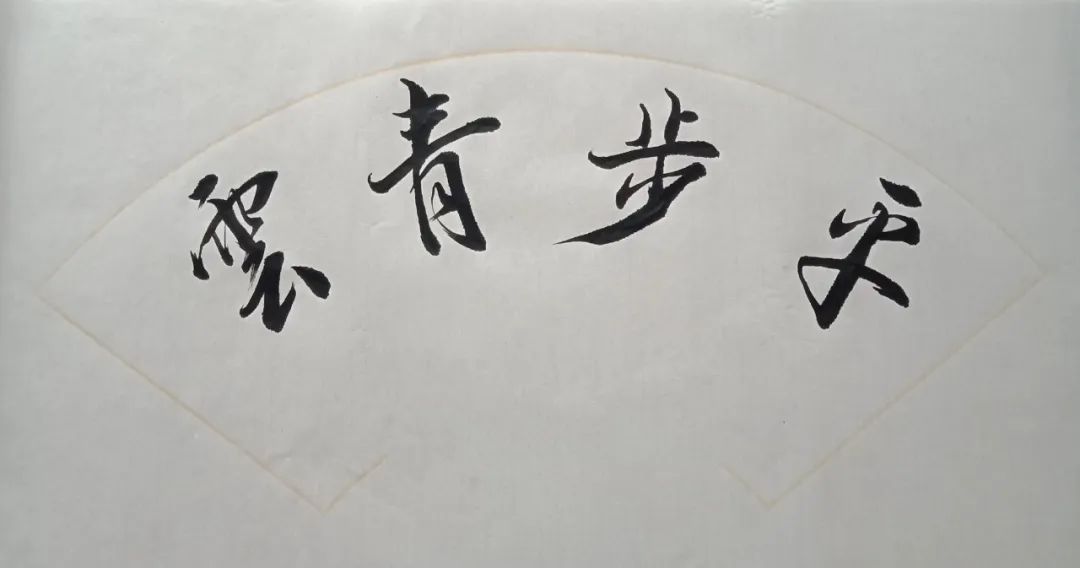 平步青雲